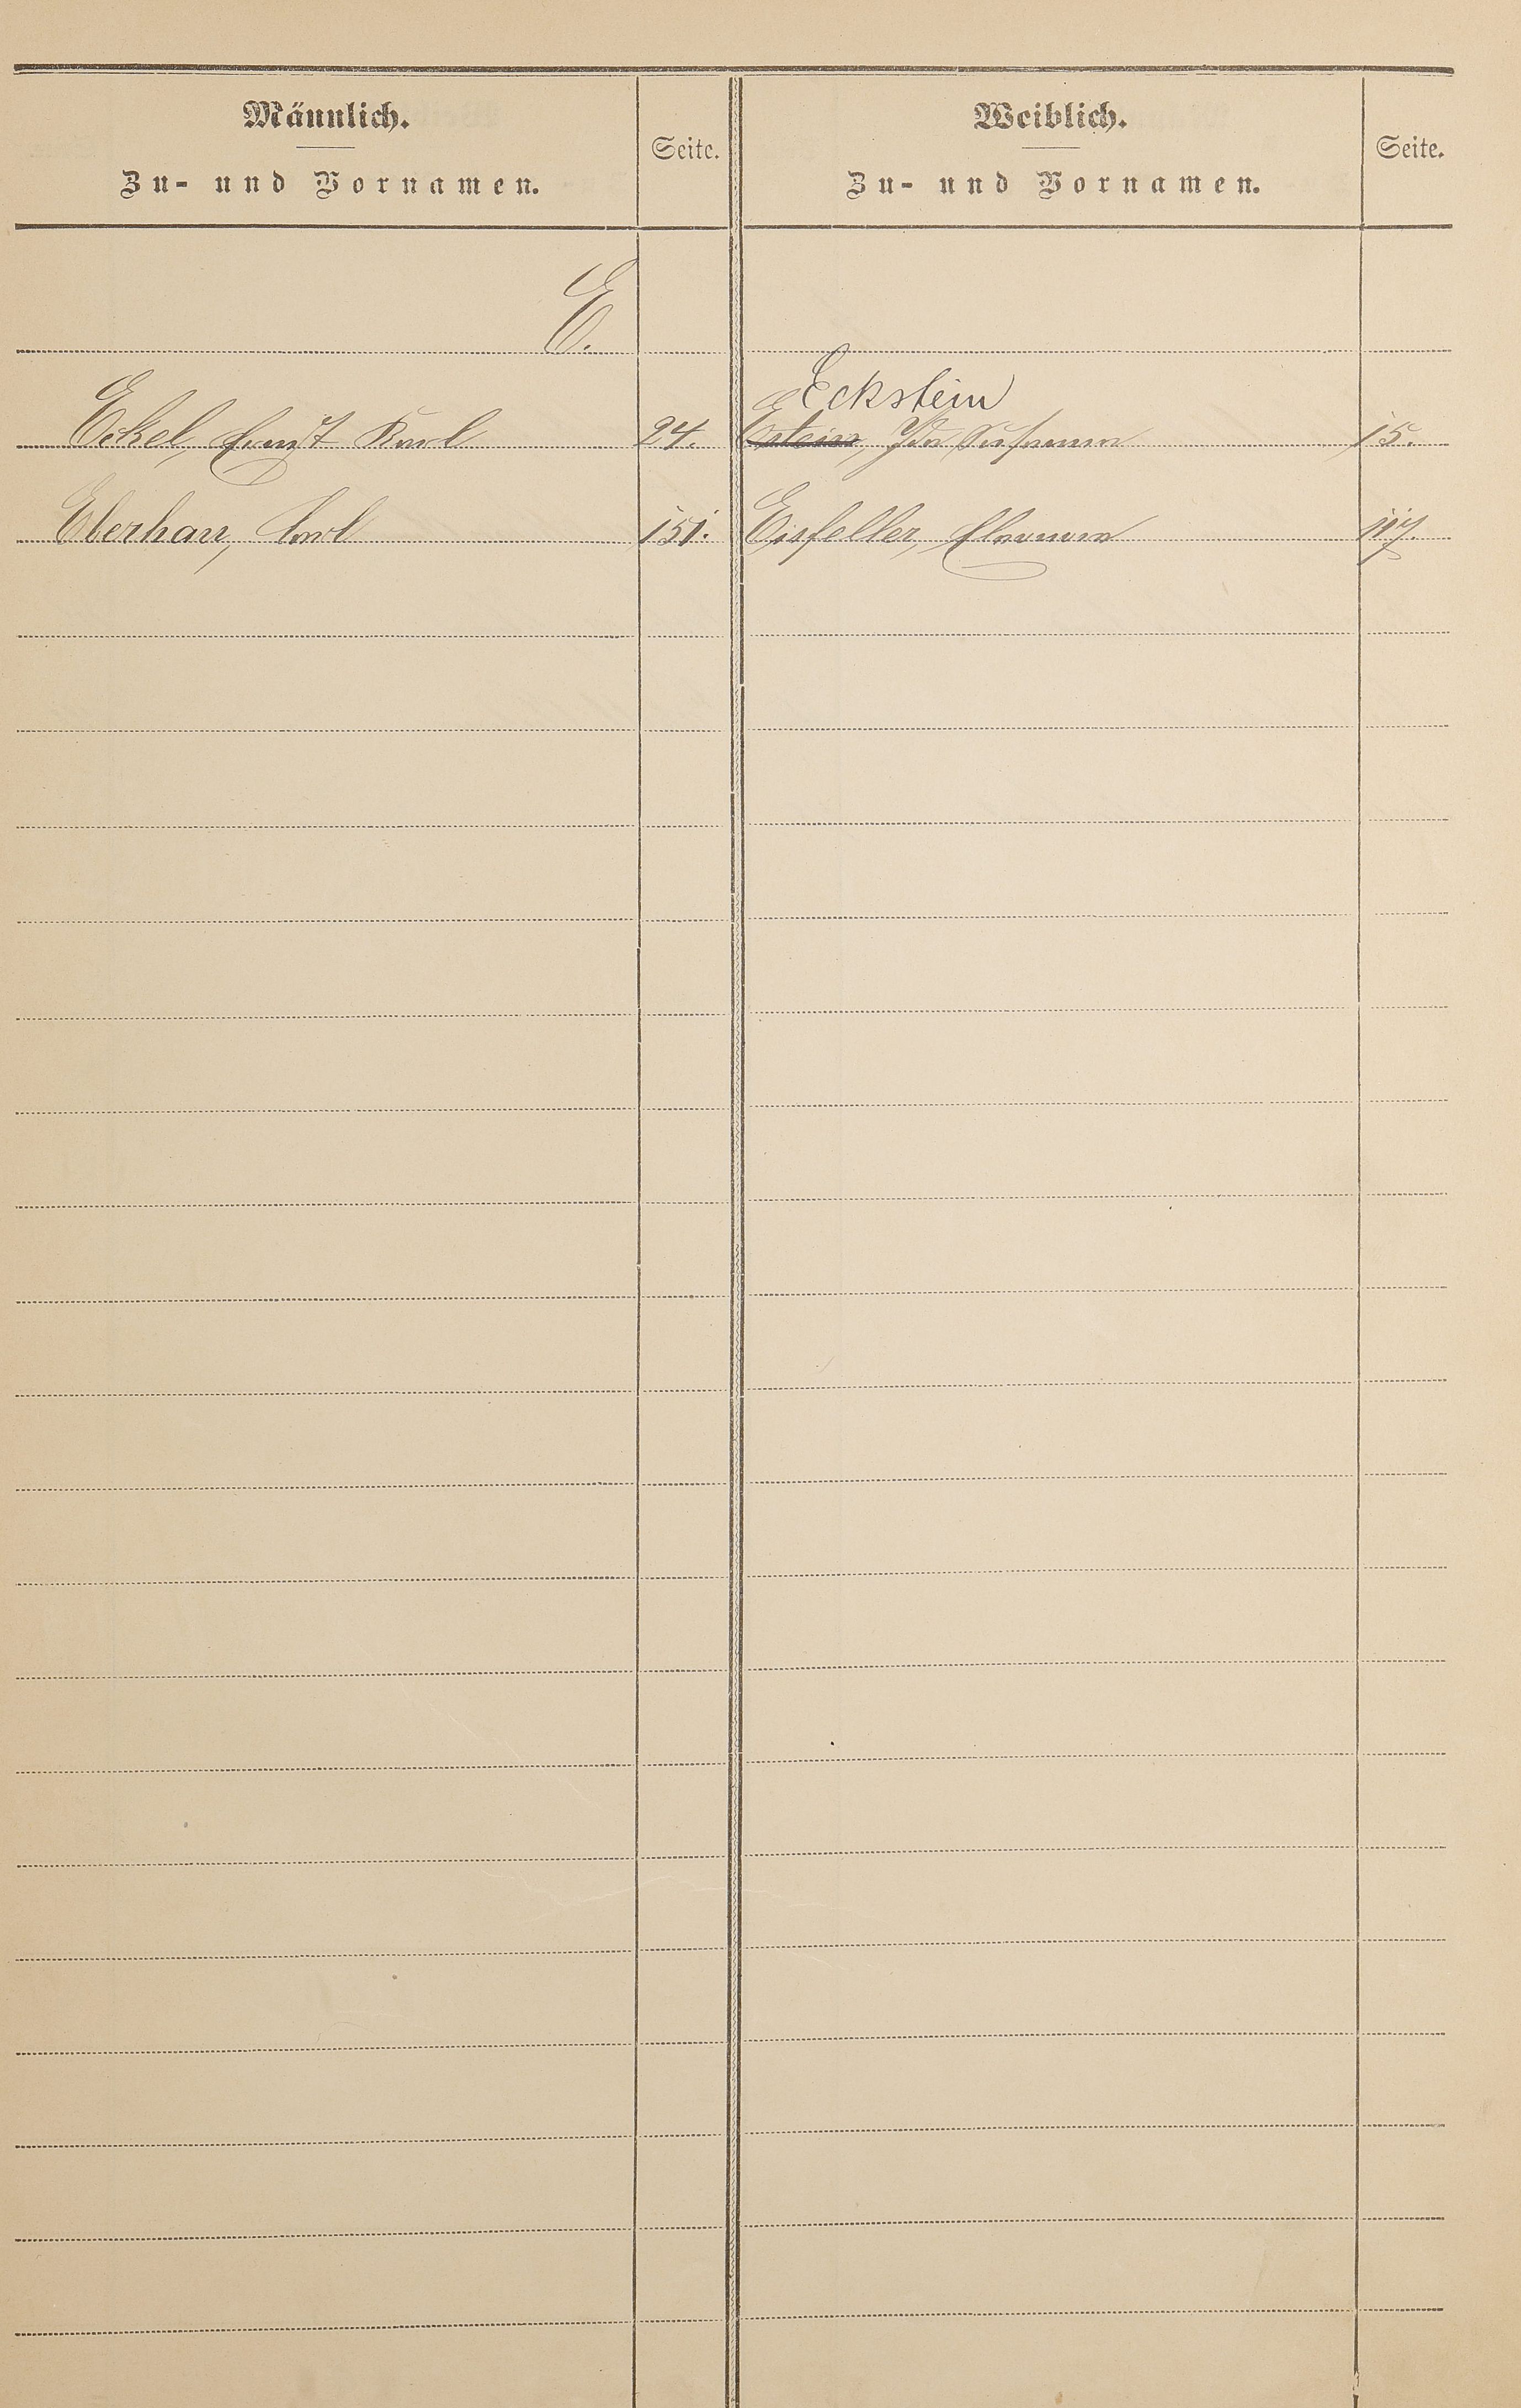 Männlich.
Zu- und Vornamen.
Seite.
Weiblich.
Zu- und Vornamen.
Seite.
E.
Eckstein
Eckel, Ernst Karl 24.
Estein, Ida Susanna 15.
Eberhan, Carl 151.
Eisfeller, 117.